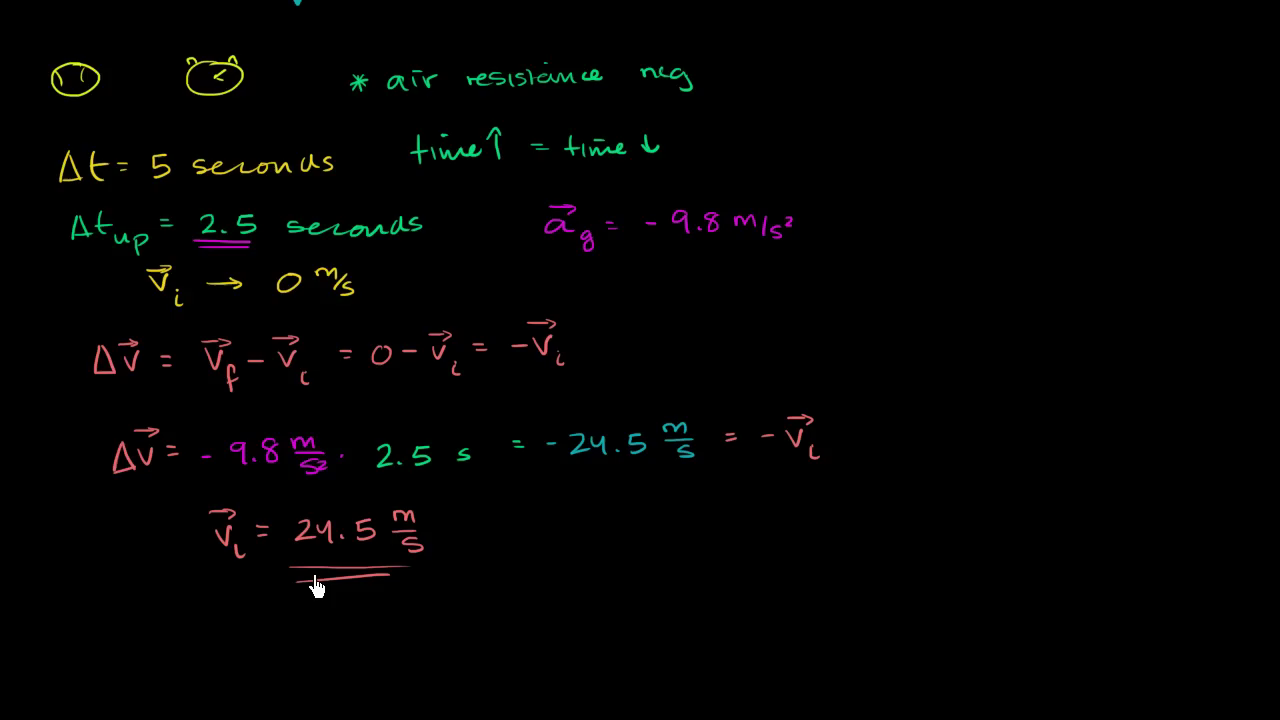 * air resistance neg
time↑ = time↓
Δt = 5 seconds
Δt_up = 2.5 seconds
a⃗_g = - 9.8 m/s²
v⃗_i → 0 m/s
Δv⃗ = v⃗_f - v⃗_i = 0 - v⃗_i = -v⃗_i
Δv⃗ = - 9.8 m/s² · 2.5 s = - 24.5 m/s = - v⃗_i
v⃗_i = 24.5 m/s